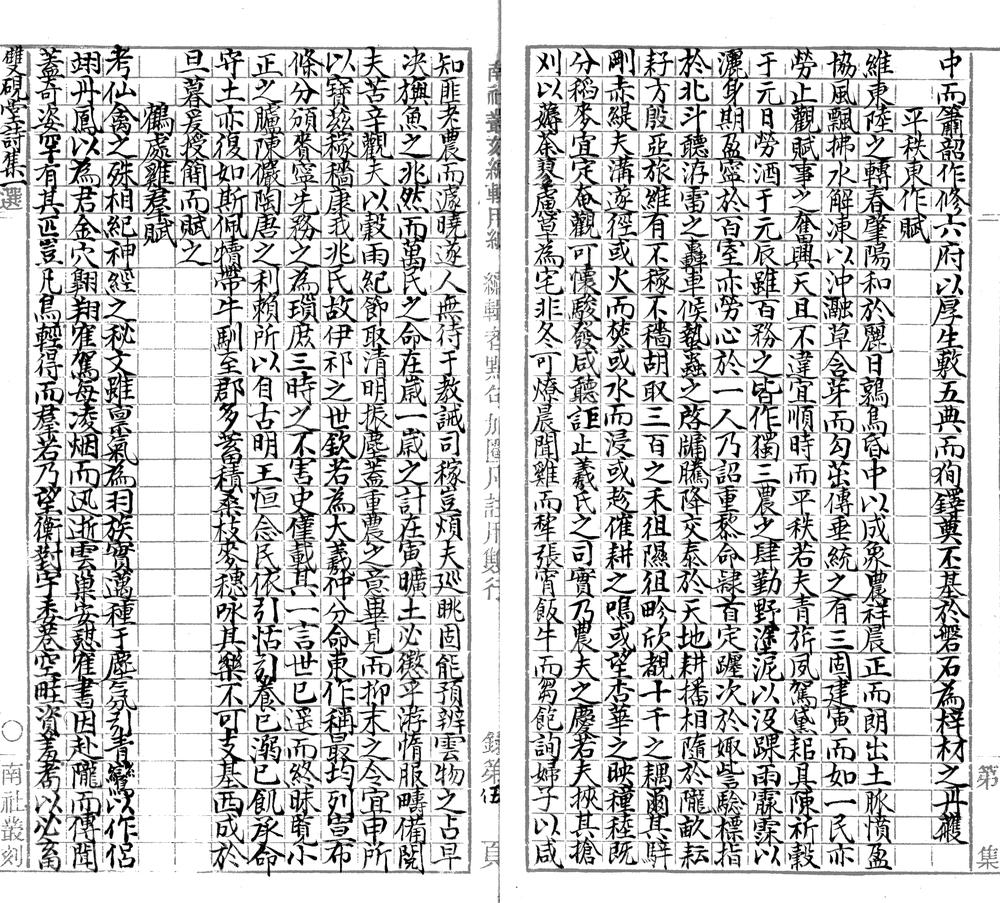 中而簫韶作修六府以厚生敷五典而狥鐸奠丕基於磐石為梓材之丹雘
平秩東作賦
維東陸之轉春肇陽和於麗日鶉鳥昏中以成象農祥晨正而朗出土脈憤盈
協風飄拂水解凍以沖瀜草含芽而勾茁傳垂統之有三固建寅而如一民亦
勞止觀賦事之奮興天且不違宜順時而平秩若夫青旂夙駕黛耜具陳祈穀
于元日勞酒于元辰雖百務之皆作獨三農之肆勤野塗泥以沒踝雨霡霂以
灑身期盈寧於百室亦勞心於一人乃詔重黎命隸首定躔次於娵訾驗標指
於北斗聽洊雷之轟車候蟄蟲之啓牖騰降交泰於天地耕播相隨於隴畝耘
耔方殷亞旅維有不稼不穡胡取三百之禾徂隰徂畛欣覩十千之耦爾其騂
剛赤緹夫溝遂徑或火而焚或水而浸或趁催耕之鳴或望杏華之映穜稑既
分稻麥宜定奄觀可懷駿發咸聽詎止羲氏之司實乃農夫之慶若夫挾其搶
刈以薅荼蓼廬簹為宅非冬可燎晨聞雞而犂張宵飯牛而芻飽詢婦子以咸
知匪老農而遽曉遂人無待于教誡司稼豈煩夫巡眺固能預辨雲物之占早
決旟魚之兆然而萬民之命在歲一歲之計在寅曠土必懲乎游惰服疇備閱
夫苦辛觀夫以穀雨紀節取清明振塵蓋重農之意畢見而抑末之令宜申所
以寶茲稼穡康我兆民故伊祁之世欽若為大羲仲分命東作稱最均列宣布
條分頒賚寧先務之為瑣庶三時之不害史僅載其一言世已遥而終昧覽小
正之臚陳儷陶唐之利賴所以自古明王恒念民依引怙引養已溺已飢承命
守土亦復如斯佩犢帶牛馴至郡多蓄積桑枝麥穗咏其樂不可支基西成於
旦暮爰授簡而賦之
鶴處雞羣賦
考仙禽之殊相紀神經之秘文雖稟氣為羽族實邁種于塵氛引青鸞以作侶
翊丹鳳以為君金穴翺翔寉駕每凌烟而迅逝雲巢安憇寉書因赴隴而傳聞
蓋奇姿罕有其匹豈凡鳥輕得而羣若乃望衡對宇委巷空旺資羞耇以必畜
雙硯堂詩集 選
南社叢刻
第 集
一